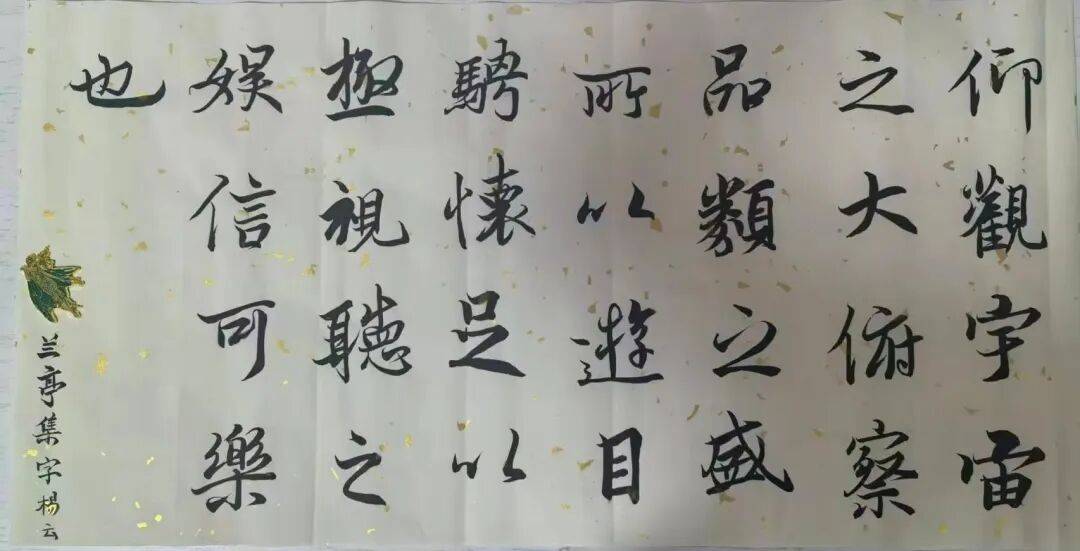 仰觀宇宙
之大俯察
品類之盛
所以遊目
騁懷足以
極視聽之
娱信可樂
也
兰亭集字杨云